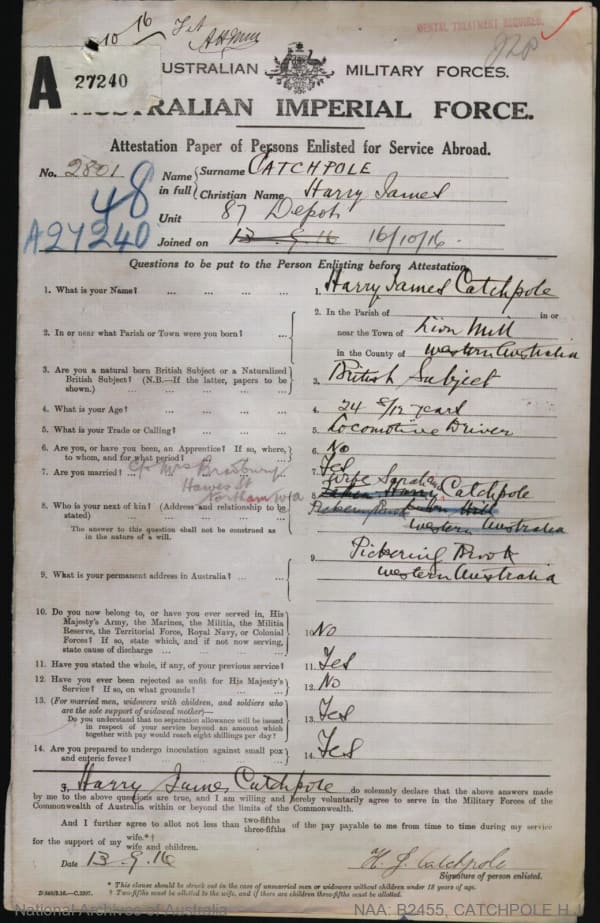 10 16
MENTAL TREATMENT REQUIRED.
A 27240
AUSTRALIAN MILITARY FORCES.
AUSTRALIAN IMPERIAL FORCE.
Attestation Paper of Persons Enlisted for Service Abroad.
No. 2801
48
A27240
Name in full { Surname CATCHPOLE
Christian Name Harry James
Unit 87 Depot
Joined on 13-9-16 16/10/16.
Questions to be put to the Person Enlisting before Attestation.
1. What is your Name? ... ... ... ... 1. Harry James Catchpole
2. In or near what Parish or Town were you born? ... 2. In the Parish of in or
near the Town of Lion Mill
in the County of Western Australia
3. Are you a natural born British Subject or a Naturalized
British Subject? (N.B.—If the latter, papers to be
shown.) ... ... ... ... 3. British Subject
4. What is your Age? ... ... ... ... 4. 24 8/12 years
5. What is your Trade or Calling? ... ... ... 5. Locomotive Driver
6. Are you, or have you been, an Apprentice? If so, where,
to whom, and for what period? ... 6. No
7. Are you married? ... 7. Yes
c/o Mrs Bradbury
Hawes St
Northam W.A
8. Who is your next of kin? (Address and relationship to be
stated) ... ... 8. Wife Sarah Catchpole
Harry
Pickering Brook Lion Mill
Western Australia
The answer to this question shall not be construed as
in the nature of a will.
9. What is your permanent address in Australia? ... ... 9. Pickering Brook
Western Australia
10. Do you now belong to, or have you ever served in, His
Majesty's Army, the Marines, the Militia, the Militia
Reserve, the Territorial Force, Royal Navy, or Colonial
Forces? If so, state which, and if not now serving,
state cause of discharge ... ... ... 10. No
11. Have you stated the whole, if any, of your previous service? 11. Yes
12. Have you ever been rejected as unfit for His Majesty's
Service? If so, on what grounds? ... ... 12. No
13. (For married men, widowers with children, and soldiers who
are the sole support of widowed mother)—
Do you understand that no separation allowance will be issued
in respect of your service beyond an amount which
together with pay would reach eight shillings per day? 13. Yes
14. Are you prepared to undergo inoculation against small pox
and enteric fever? ... ... ... 14. Yes
I, Harry James Catchpole do solemnly declare that the above answers made
by me to the above questions are true, and I am willing and hereby voluntarily agree to serve in the Military Forces of the
Commonwealth of Australia within or beyond the limits of the Commonwealth.
And I further agree to allot not less than two-fifths three-fifths of the pay payable to me from time to time during my service
for the support of my wife.*† wife and children.
Date 13.9.16
H. J. Catchpole
Signature of person enlisted.
* This clause should be struck out in the case of unmarried men or widowers without children under 18 years of age.
† Two-fifths must be allotted to the wife, and if there are children three-fifths must be allotted.
National Archives of Australia
NAA: B2455, CATCHPOLE H J